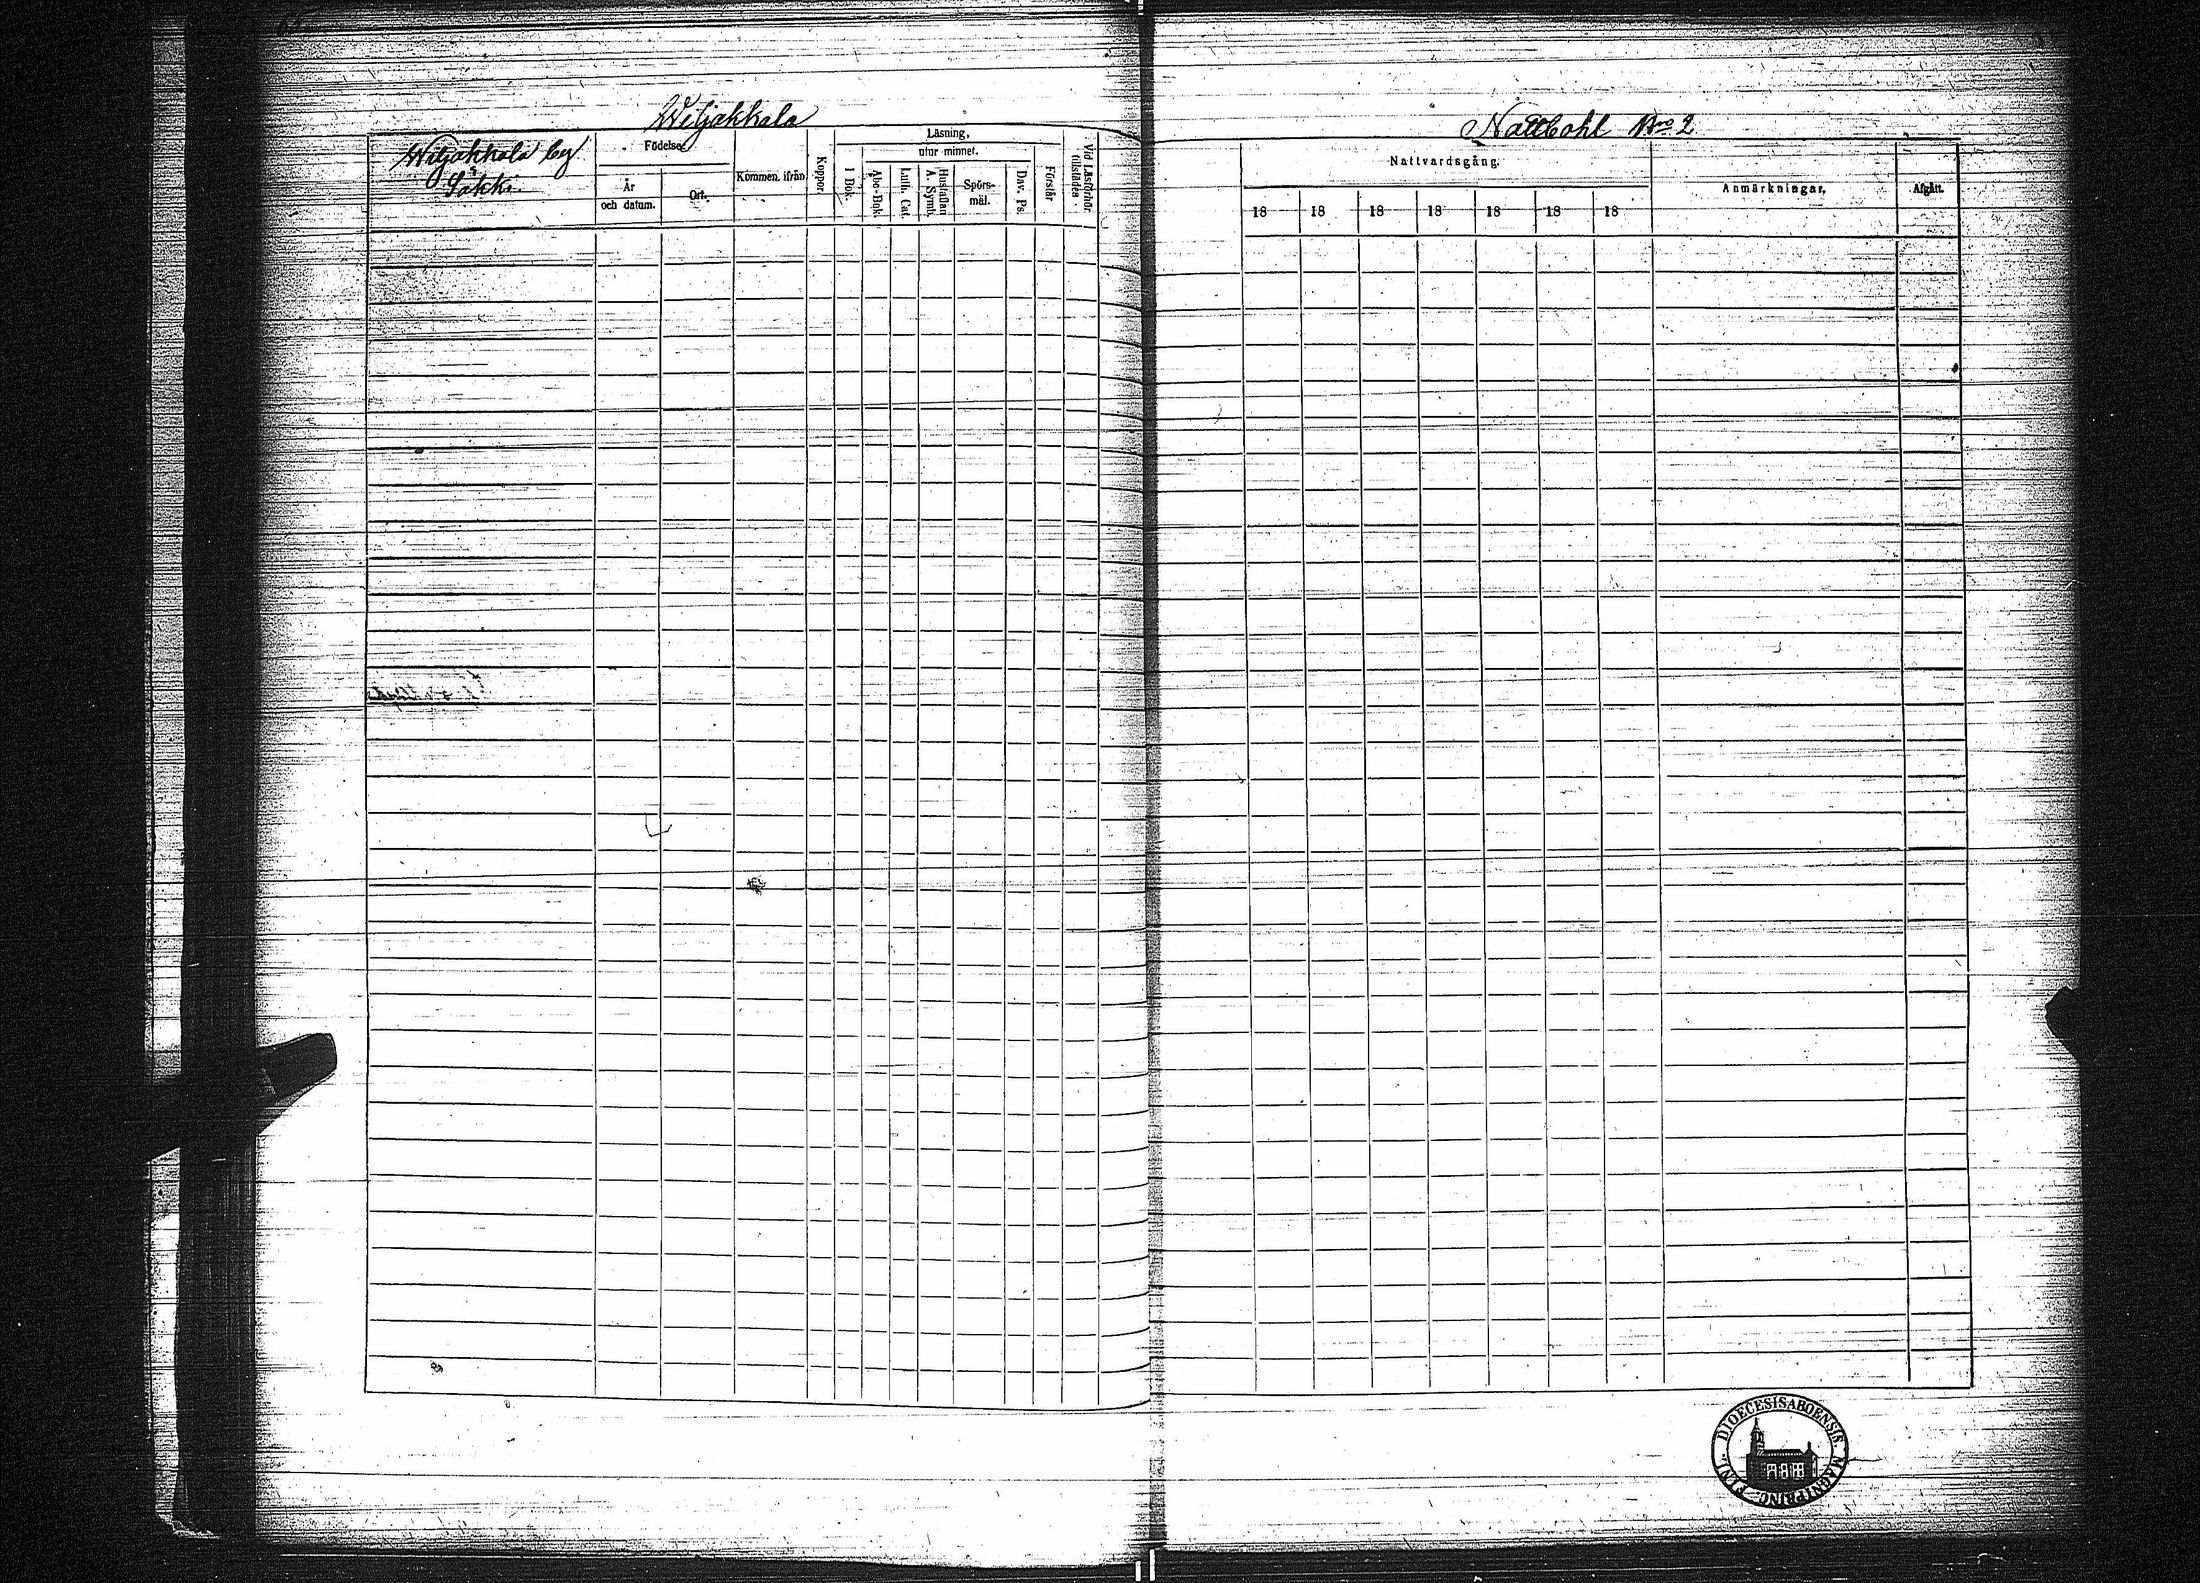 Wiljakkala
Wiljakkala by.
Säkki.
Födelse
År
och datum.
Ort.
Kommen ifrån
Koppor
Läsning,
utur minnet.
I Bok.
Abc-Bok
Luth. Cat.
Hustaflan
A. Symb.
Spörs-
mål.
Dav. Ps.
Förstår
Vid Läsförhör
tillstädes
Nattbohl Nro 2
Nattvardsgång.
18 18 18 18 18 18 18
Anmärkningar.
Afgått.
DIOECESIS ABOENSIS. MAGNI PRINC. FINL.